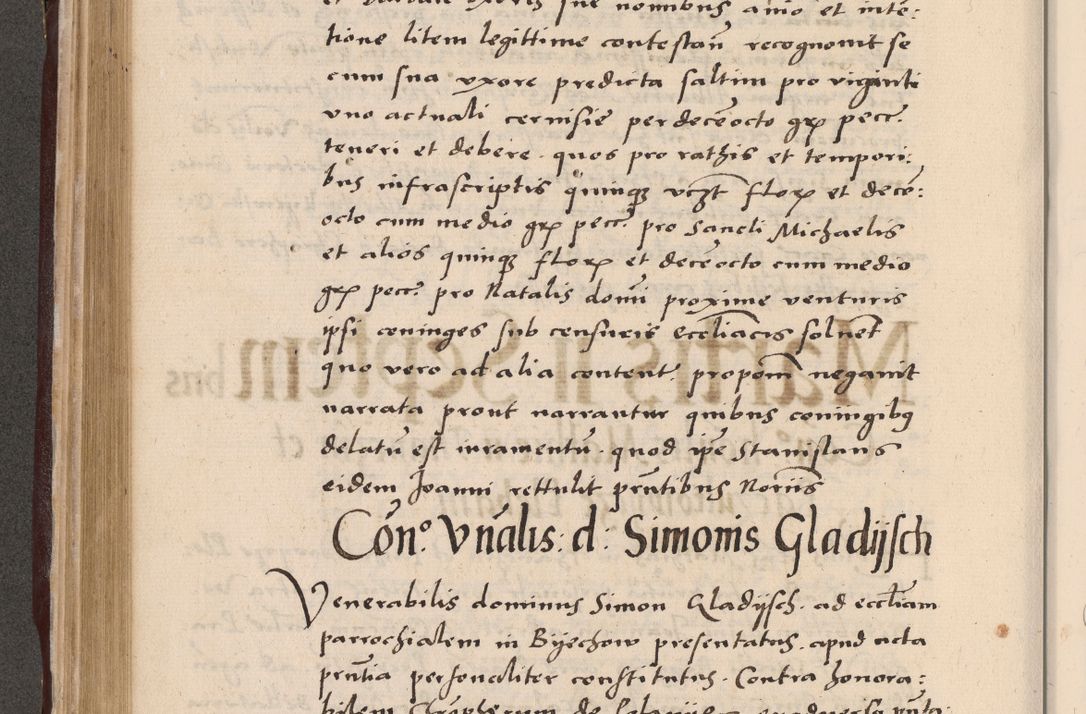 et Barbare uxoris sue nominibus animo et inten:
tione litem legittime contestan̄ recognovit se
cum sua uxore predicta saltim pro viginti
uno actuali cervisie per deceōocto gr̄ pecc̄.
teneri et debere · quos pro rathis et tempori:
bus infrascriptis quinq₃ vcz̄t flor̄ et decē:
octo cum medio gr̄ pecc̄. pro Sancti Michaelis
et alios quinq₃ flor̄ et decēocto cum medio
gr̄ pecc̄. pro Natalis domī proxime venturis
ipsi coniuges sub censuris eccl̄iacis solvēt
quo vero ad alia content̄. propom̄ negavit
narrata prout narrantur quibus coniugibq
delatū est iuramentū · quod ip̄e Stanislaus
eidem Joanni rettulit pn̄tibus Noriis
Cōn°. Vn̄alis : d : Simonis Gladijsch
Venerabilis dominus Simon Gladijsch · ad eccl̄iam
parrochialem in Bijechow presentatus · apud acta
pn̄tia personaliter constitutus · Contra honora:
bilem Christopherum de